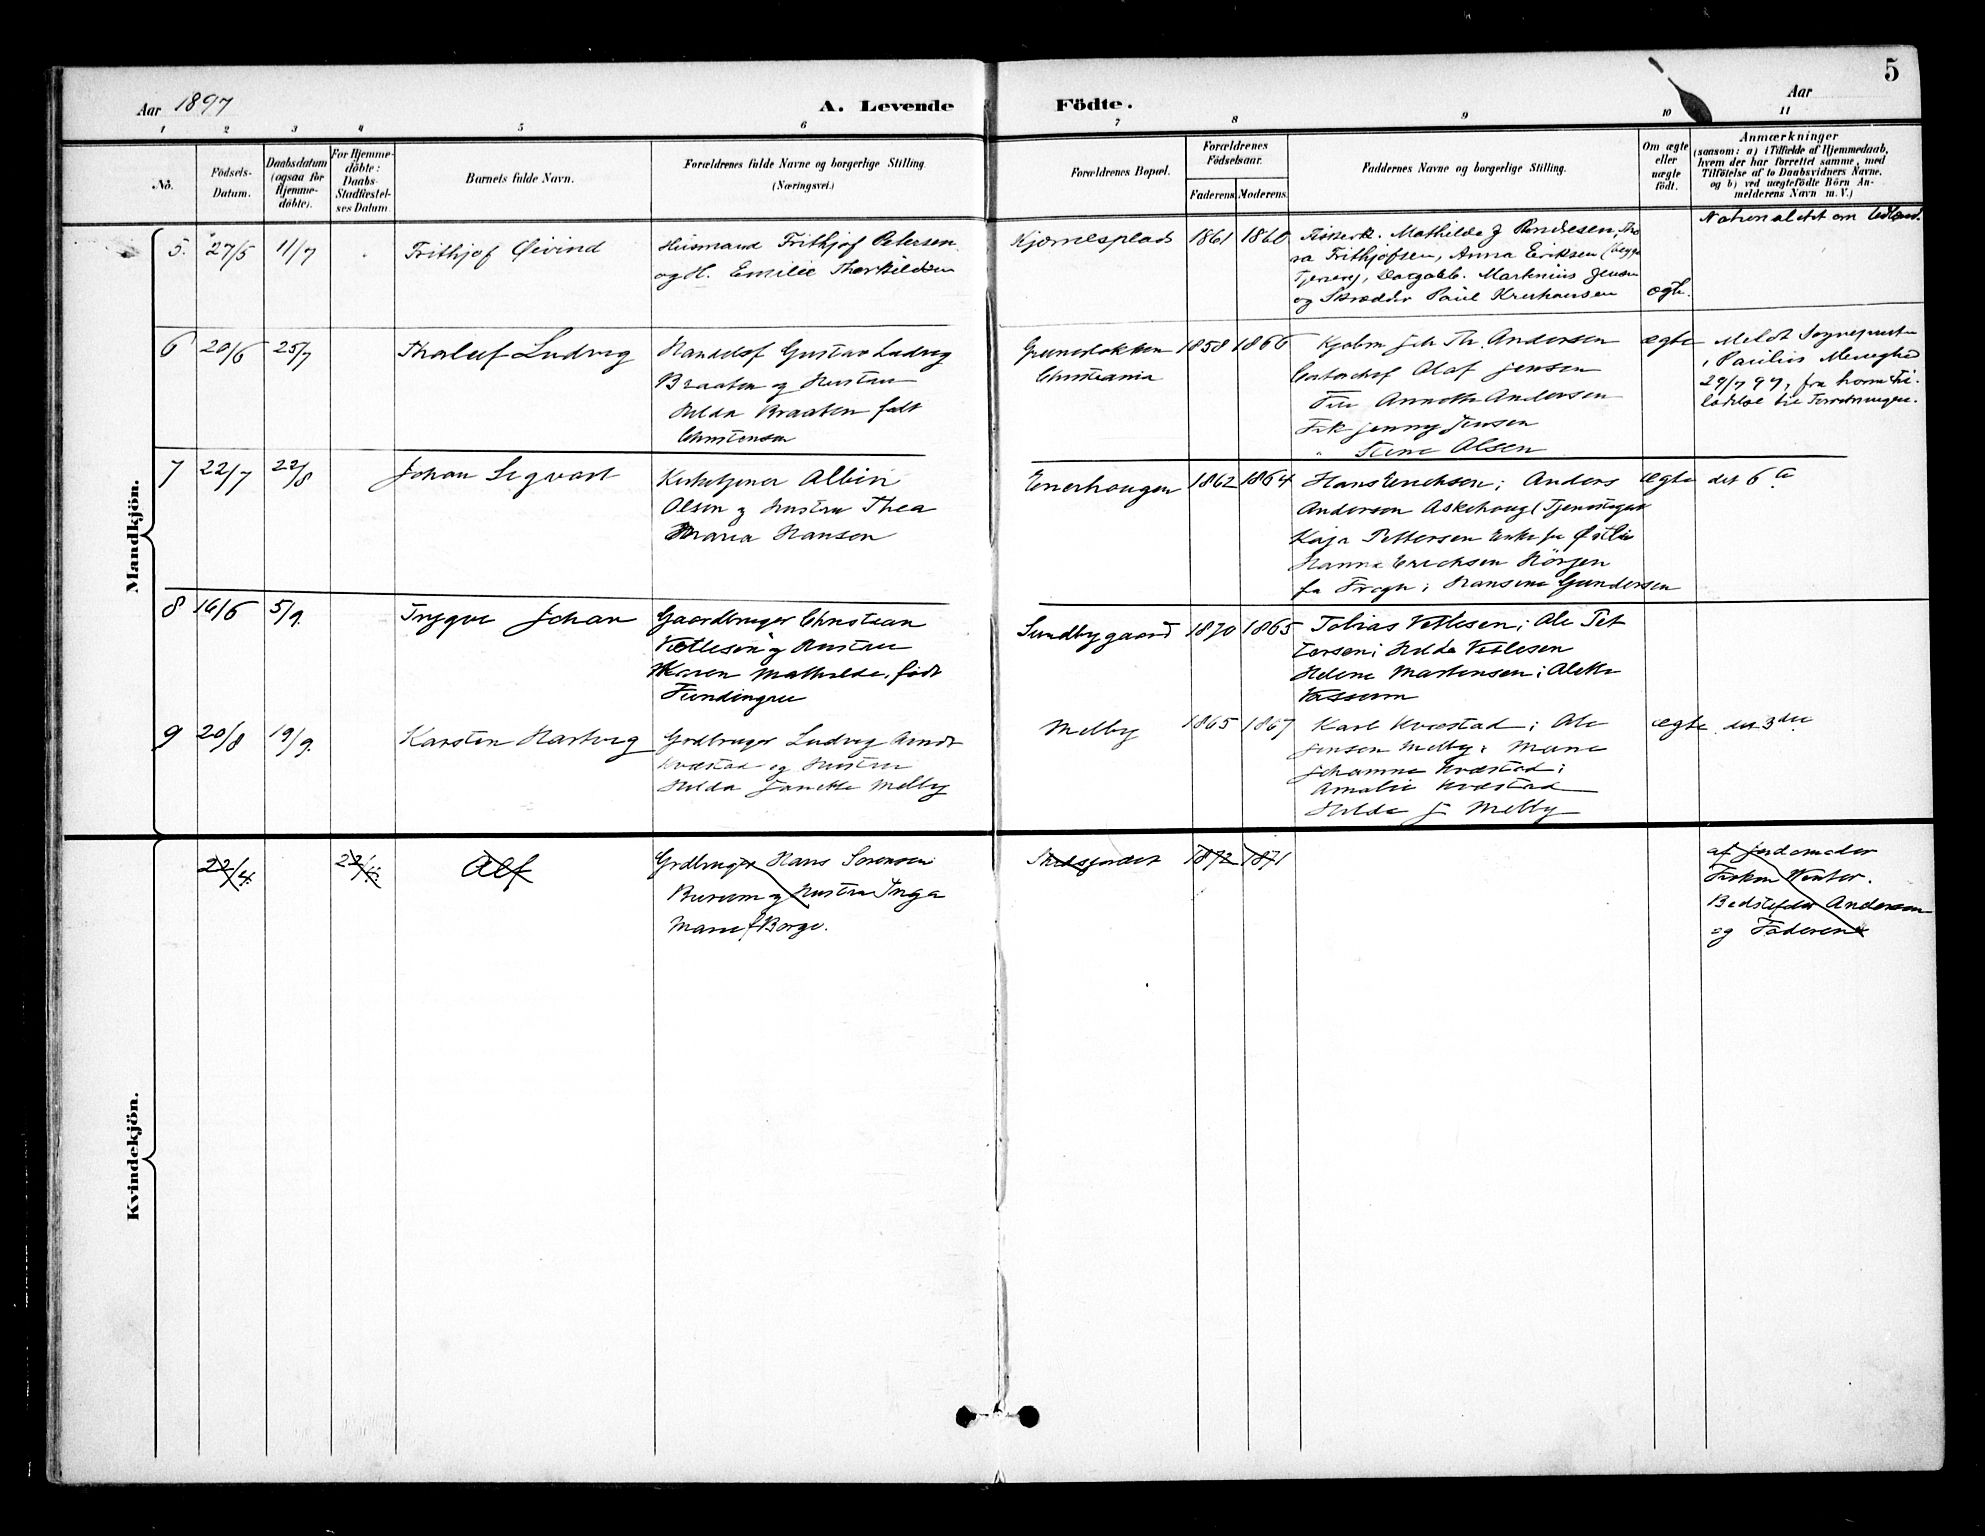 5
Aar 1897
A. Levende Födte.
Aar
1 2 3 4 5 6 7 8 9 10 11
No.
Födsels-
Datum.
Daabsdatum
(ogsaa for
Hjemme-
döbte).
For Hjemme-
döbte:
Daabs-
Stadfæstel-
ses Datum.
Barnets fulde Navn.
Forældrenes fulde Navne og borgerlige Stilling.
(Næringsvei.)
Forældrenes Bopæl.
Forældrenes
Födselsaar.
Faderens. Moderens.
Faddernes Navne og borgerlige Stilling.
Om ægte
eller
uægte
født.
Anmærkninger
(saasom: a) i Tilfælde af Hjemmedaab,
hvem der har forrettet samme, med
Tilföielse af to Daabsvidners Navne,
og b) ved uægtefödte Börn An-
melderens Navn m. V.)
Mandkjön.
5. 27/5 11/7 Frithjof Øivind
Husmand Frithjof Petersen
og H. Emilie Thorkildsen
Kjærnesplads 1861 1860
Mathilde J
Frithjofsen, Anna Eriksen
Markinius Jensen
og Skrædder Paul
ægte.
6 20/6 25/7 Thoralf Ludvig
Handelsf Gustav Ludvig
Braaten og Hustru
Hilda Braaten født
Christensen
Grünerløkken
Christiania
1858 1866
Joh Th. Andersen
Olaf Jensen
Fru Annette Andersen
Frk Jenny Jensen
" Olsen
ægte
Meldt Sognepresten
i Paulus Menighed
29/7 97, fra
7 22/7 22/8 Johan Sigvart
Kirketjener Albin
Olsen og Hustru Thea
Maria Hansen
Enerhougen 1862 1864
Hans Erichsen; Anders
Anderson Askehoug (
Kaja Pettersen
Hanna Erichsen
fra Frogn; Hansine Gundersen
ægte det 6te
8 16/6 5/9. Trygve Johan
Gaardbruger Christian
Vetlesen og Hustru
Karen Mathilde, født
Fundingrud
Sundbygaard 1870 1865
Tobias Vetlesen; Ole Pet
tersen; Hilda Vetlesen
Helene Martensen; Alette
Vassum
9 20/8 19/9. Karsten Hartvig
Grdbruger Ludvig Arndt
Kvæstad og Hustru
Hilda Janette Melby
Melby 1865 1867
Karl Kvæstad; Ole
Jensen Melby; Marie
Johanne Kvæstad;
Amalie Kvæstad
Hilda J Melby
ægte det 3die
Kvindekjön.
22/4. Alf
Grdbruger Hans Sørensen
Burum og Hustru Inga
Marie f Borge.
1872 1871
af Jordemoder
Frøken Winter.
Bedstefader Andersen
og Faderen